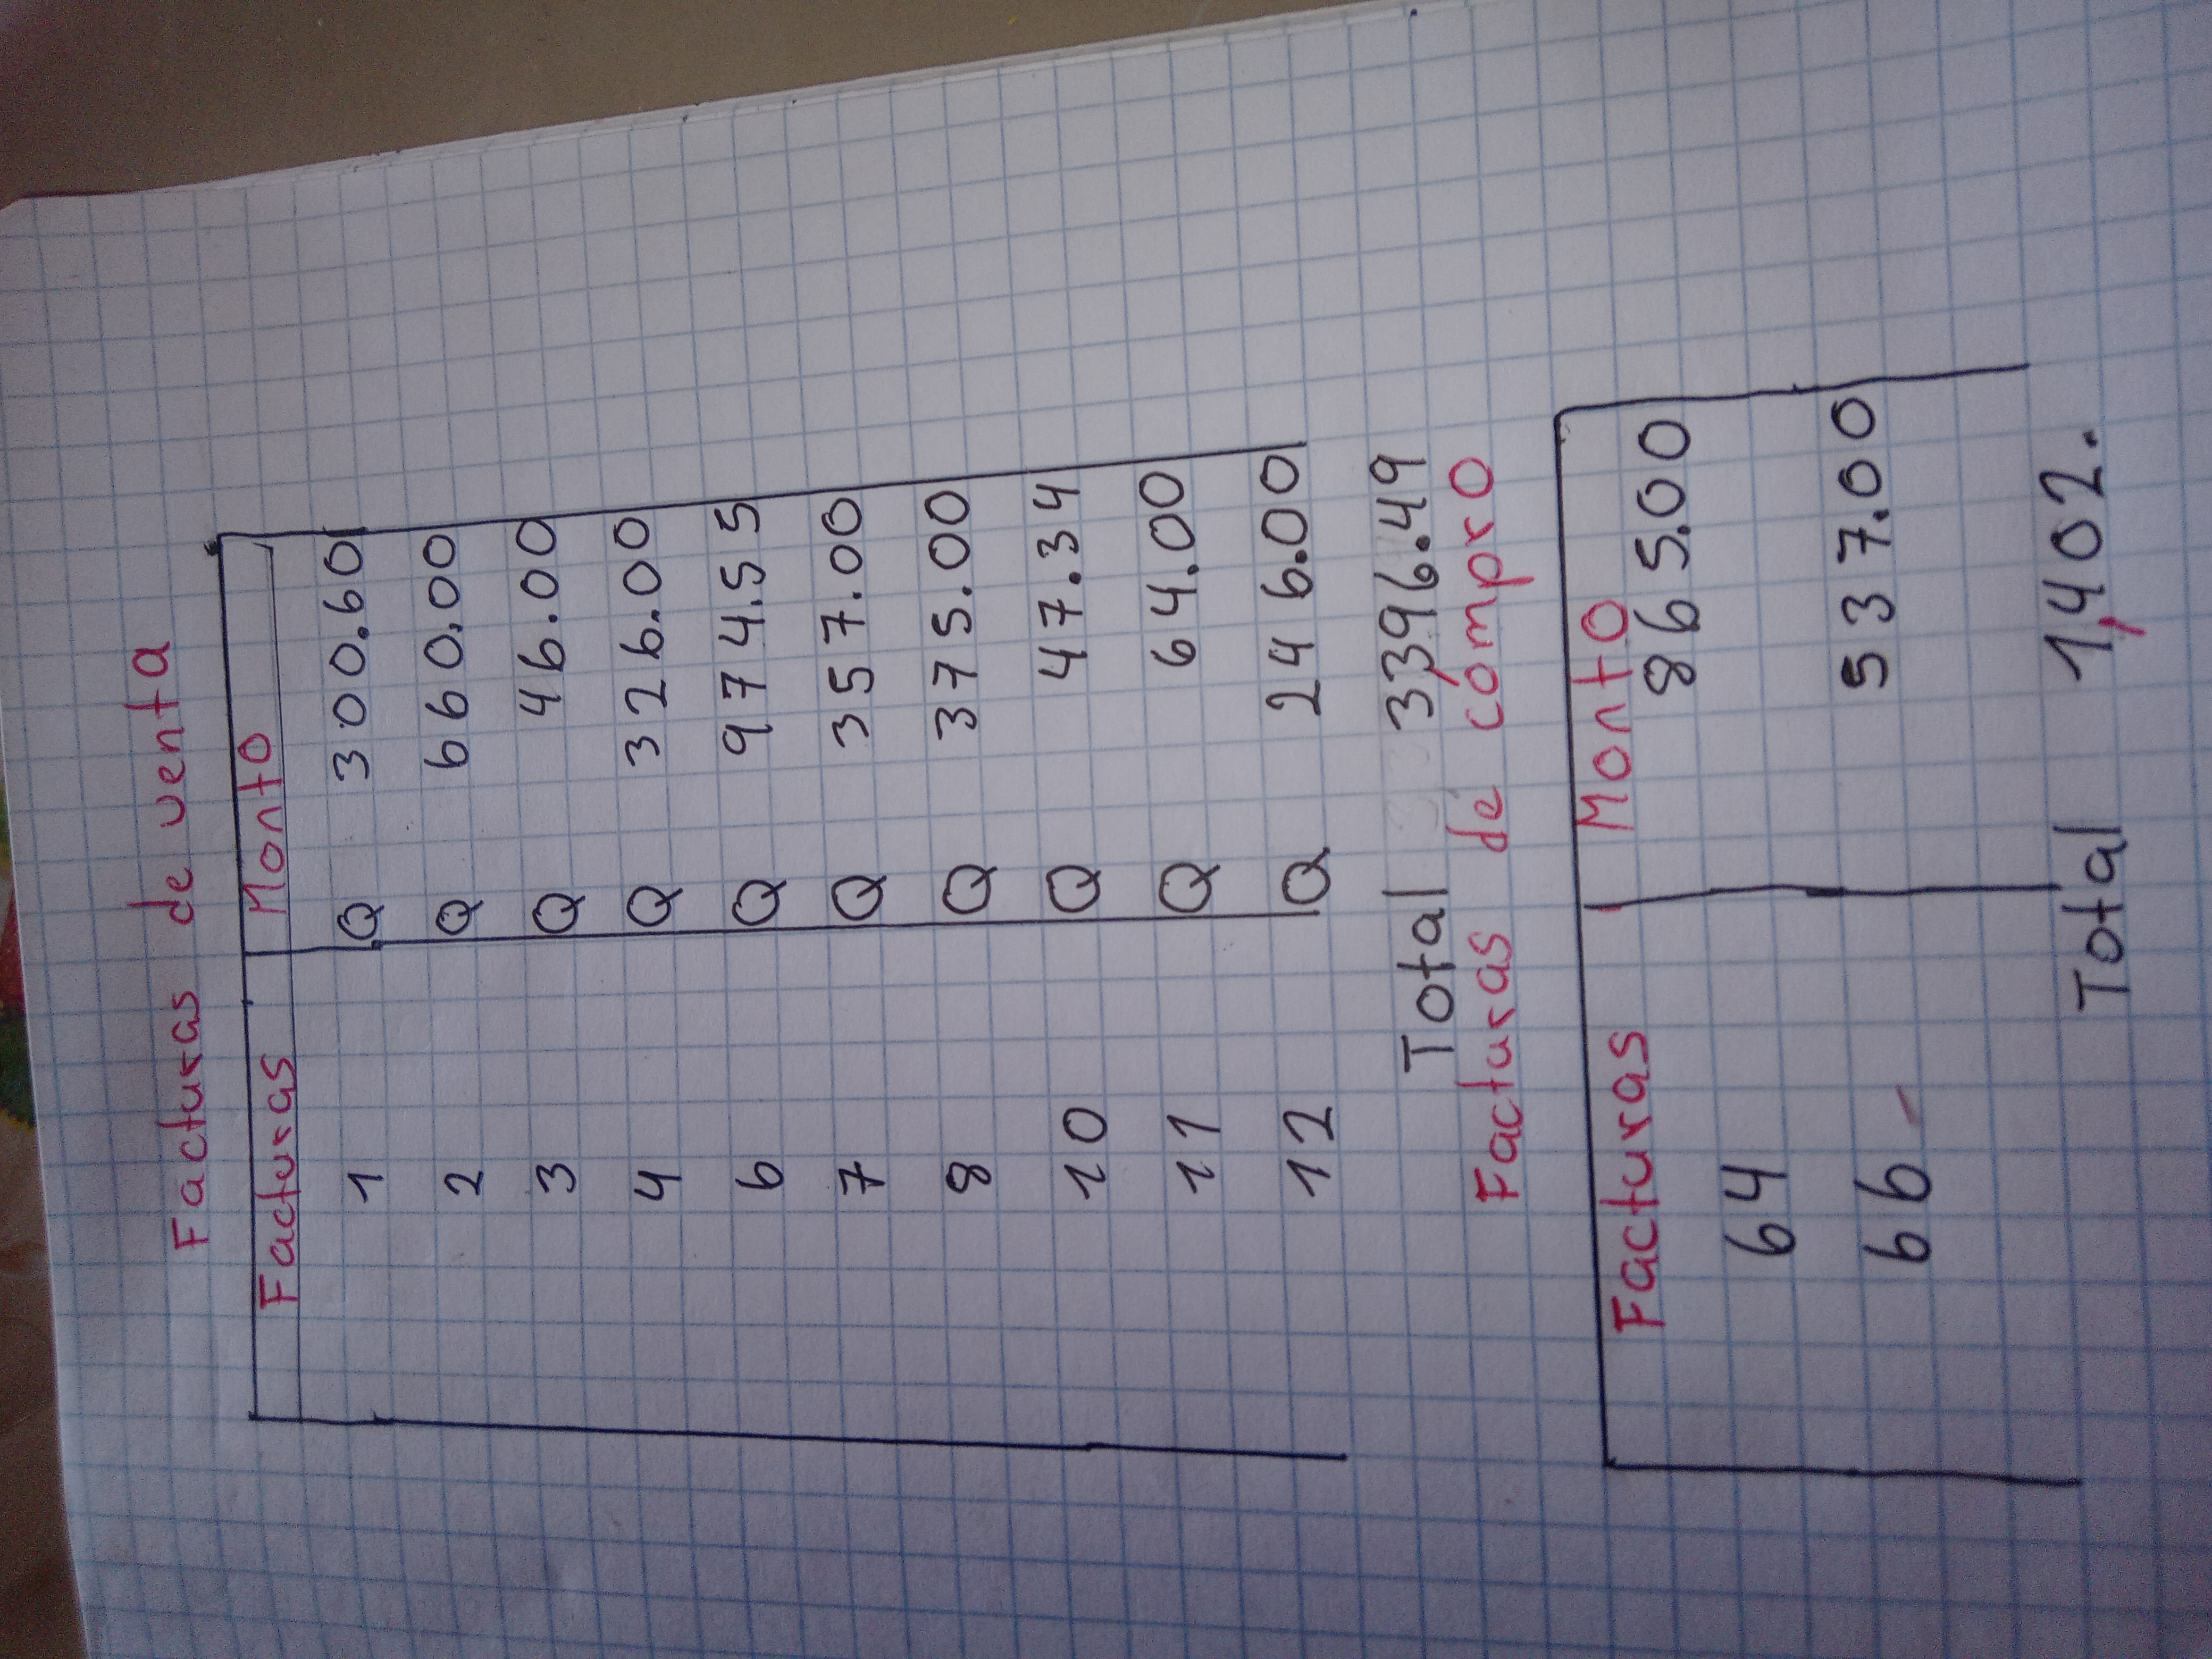 Facturas de venta
Facturas Monto
1 Q 300.60
2 Q 660.00
3 Q 46.00
4 Q 326.00
6 Q 974.55
7 Q 357.00
8 Q 375.00
10 Q 47.34
11 Q 64.00
12 Q 246.00
Total 3,396.49
Facturas de compra
Facturas Monto
64 865.00
66 537.00
Total 1,402.